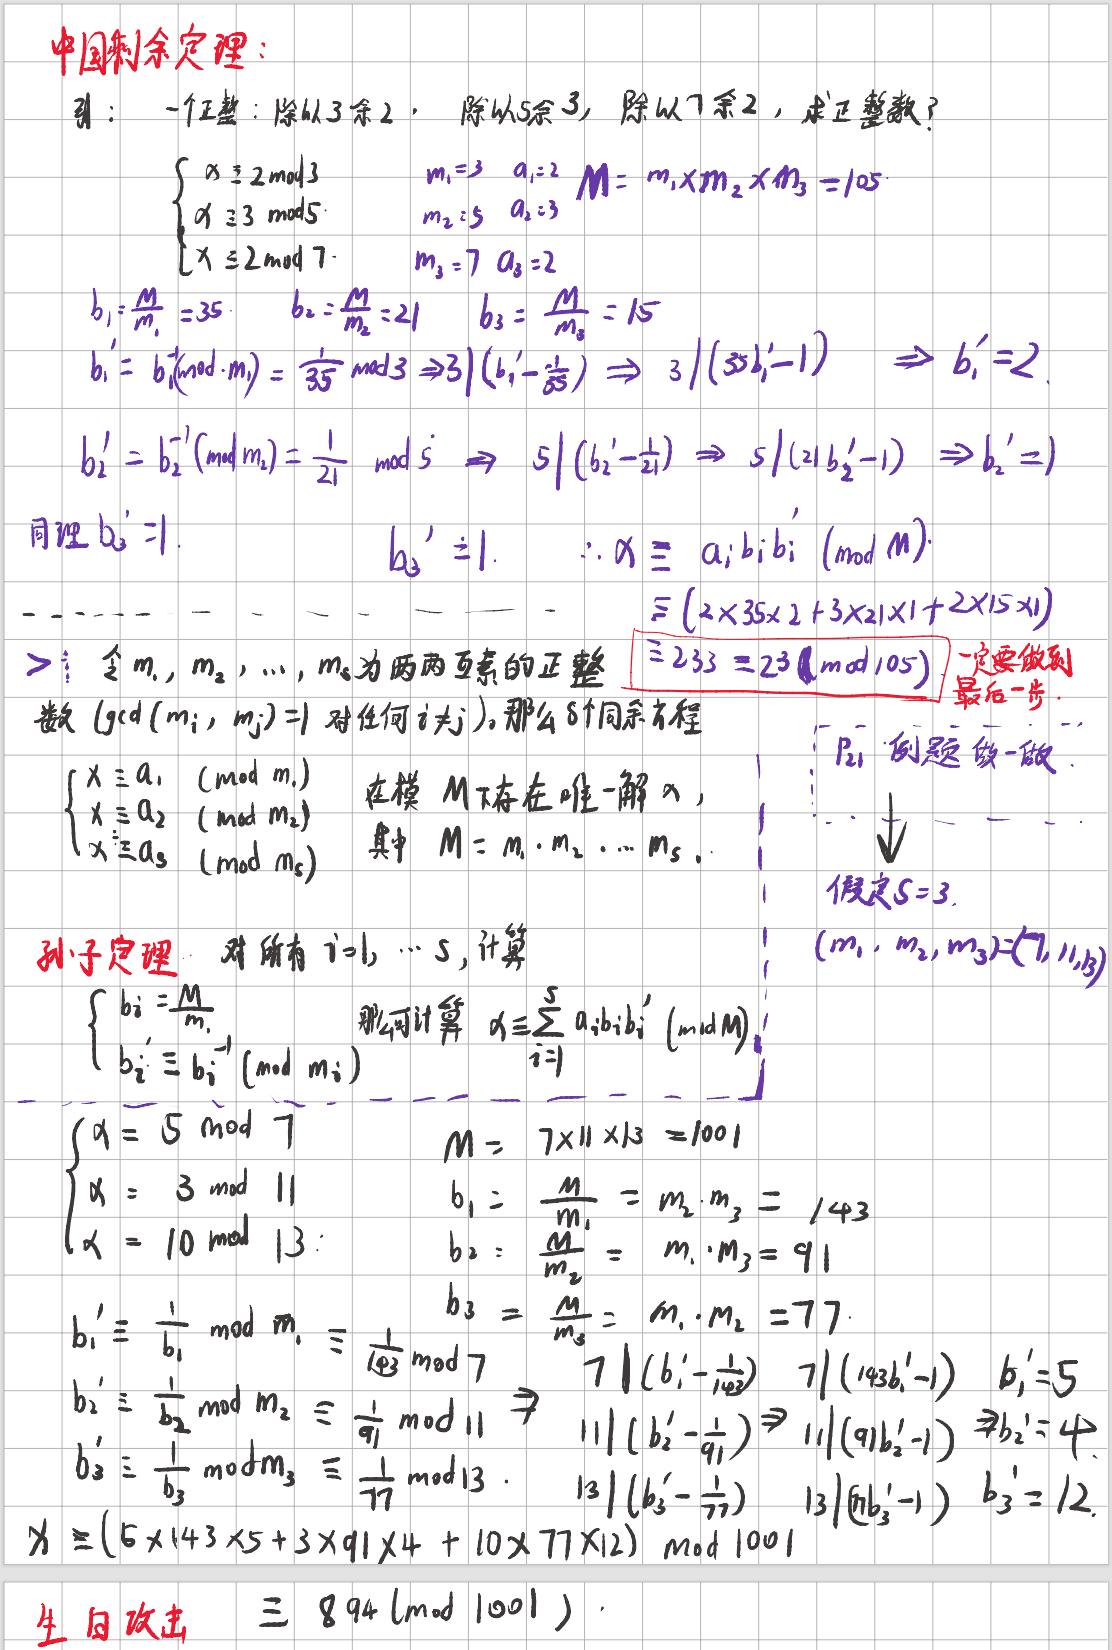 中国剩余定理：
引： 一个正整：除以3余2， 除以5余3，除以7余2，求正整数？
x ≡ 2 mod 3 m₁=3 a₁=2 M = m₁×m₂×m₃ = 105
x ≡ 3 mod 5 m₂=5 a₂=3
x ≡ 2 mod 7 m₃=7 a₃=2
b₁ = M/m₁ = 35 b₂ = M/m₂ = 21 b₃ = M/m₃ = 15
b₁' = b₁⁻¹(mod m₁) = 1/35 mod 3 ⇒ 3|(b₁'-1/35) ⇒ 3|(35b₁'-1) ⇒ b₁'=2.
b₂' = b₂⁻¹(mod m₂) = 1/21 mod 5 ⇒ 5|(b₂'-1/21) ⇒ 5|(21b₂'-1) ⇒ b₂'=1
同理 b₃'=1. b₃'=1. ∴ x ≡ aᵢbᵢbᵢ' (mod M).
≡ (2×35×2+3×21×1+2×15×1)
≡ 233 ≡ 23 (mod 105) 一定要做到
最后一步.
> 令 m₁, m₂, …, mₛ 为两两互素的正整
数 (gcd(mᵢ, mⱼ)=1 对任何 i≠j)。那么 s个同余方程
x ≡ a₁ (mod m₁)
x ≡ a₂ (mod m₂)
⋮
x ≡ aₛ (mod mₛ)
在模 M 下存在唯一解 x，
其中 M = m₁·m₂·…mₛ.
P₂₁ 例题 做一做.
↓
假定 S=3.
(m₁, m₂, m₃)=(7,11,13)
孙子定理 对所有 i=1, … s, 计算
bᵢ = M/mᵢ
bᵢ' ≡ bᵢ⁻¹ (mod mᵢ)
那么可计算 x ≡ ∑ᵢ₌₁ˢ aᵢbᵢbᵢ' (mod M)
x = 5 mod 7 M = 7×11×13 = 1001
x = 3 mod 11 b₁ = M/m₁ = m₂·m₃ = 143
x = 10 mod 13 b₂ = M/m₂ = m₁·m₃ = 91
b₃ = M/m₃ = m₁·m₂ = 77.
b₁' ≡ 1/b₁ mod m₁ ≡ 1/143 mod 7 7|(b₁'-1/143) 7|(143b₁'-1) b₁'=5
b₂' ≡ 1/b₂ mod m₂ ≡ 1/91 mod 11 ⇒ 11|(b₂'-1/91) ⇒ 11|(91b₂'-1) ⇒ b₂'=4.
b₃' ≡ 1/b₃ mod m₃ ≡ 1/77 mod 13. 13|(b₃'-1/77) 13|(77b₃'-1) b₃'=12.
x ≡ (5×143×5+3×91×4+10×77×12) mod 1001
生日攻击 ≡ 894 (mod 1001).